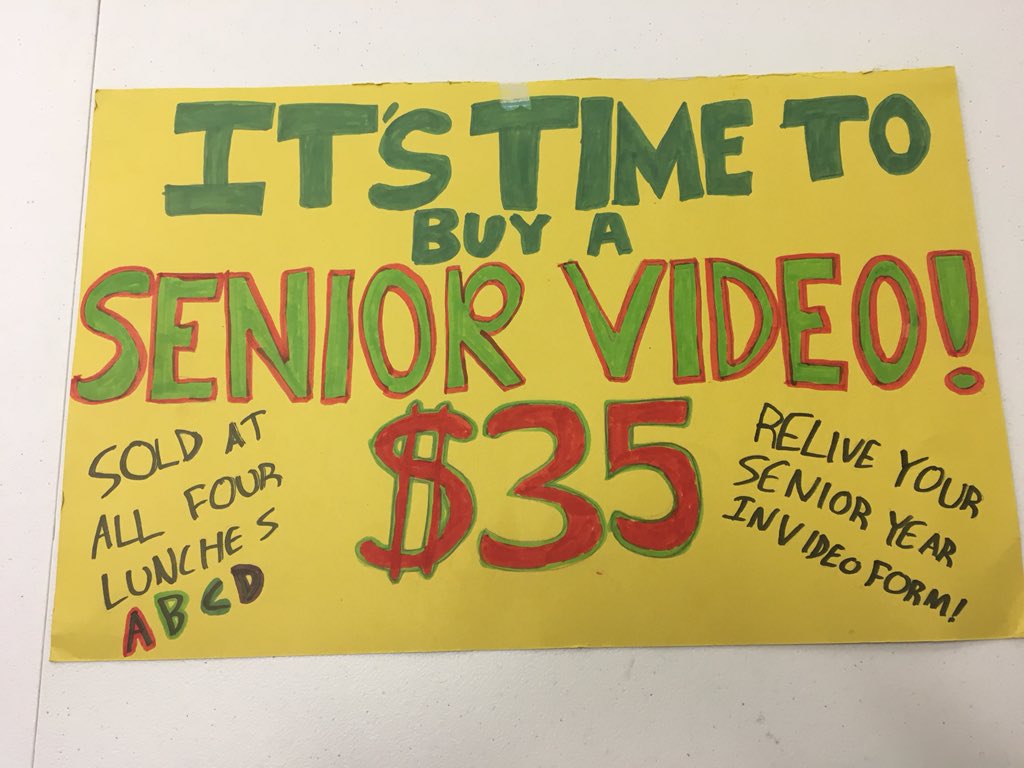 IT'S TIME TO
BUY A
SENIOR VIDEO!
$35
SOLD AT
ALL FOUR
LUNCHES
A B C D
RELIVE YOUR
SENIOR YEAR
IN VIDEO FORM!